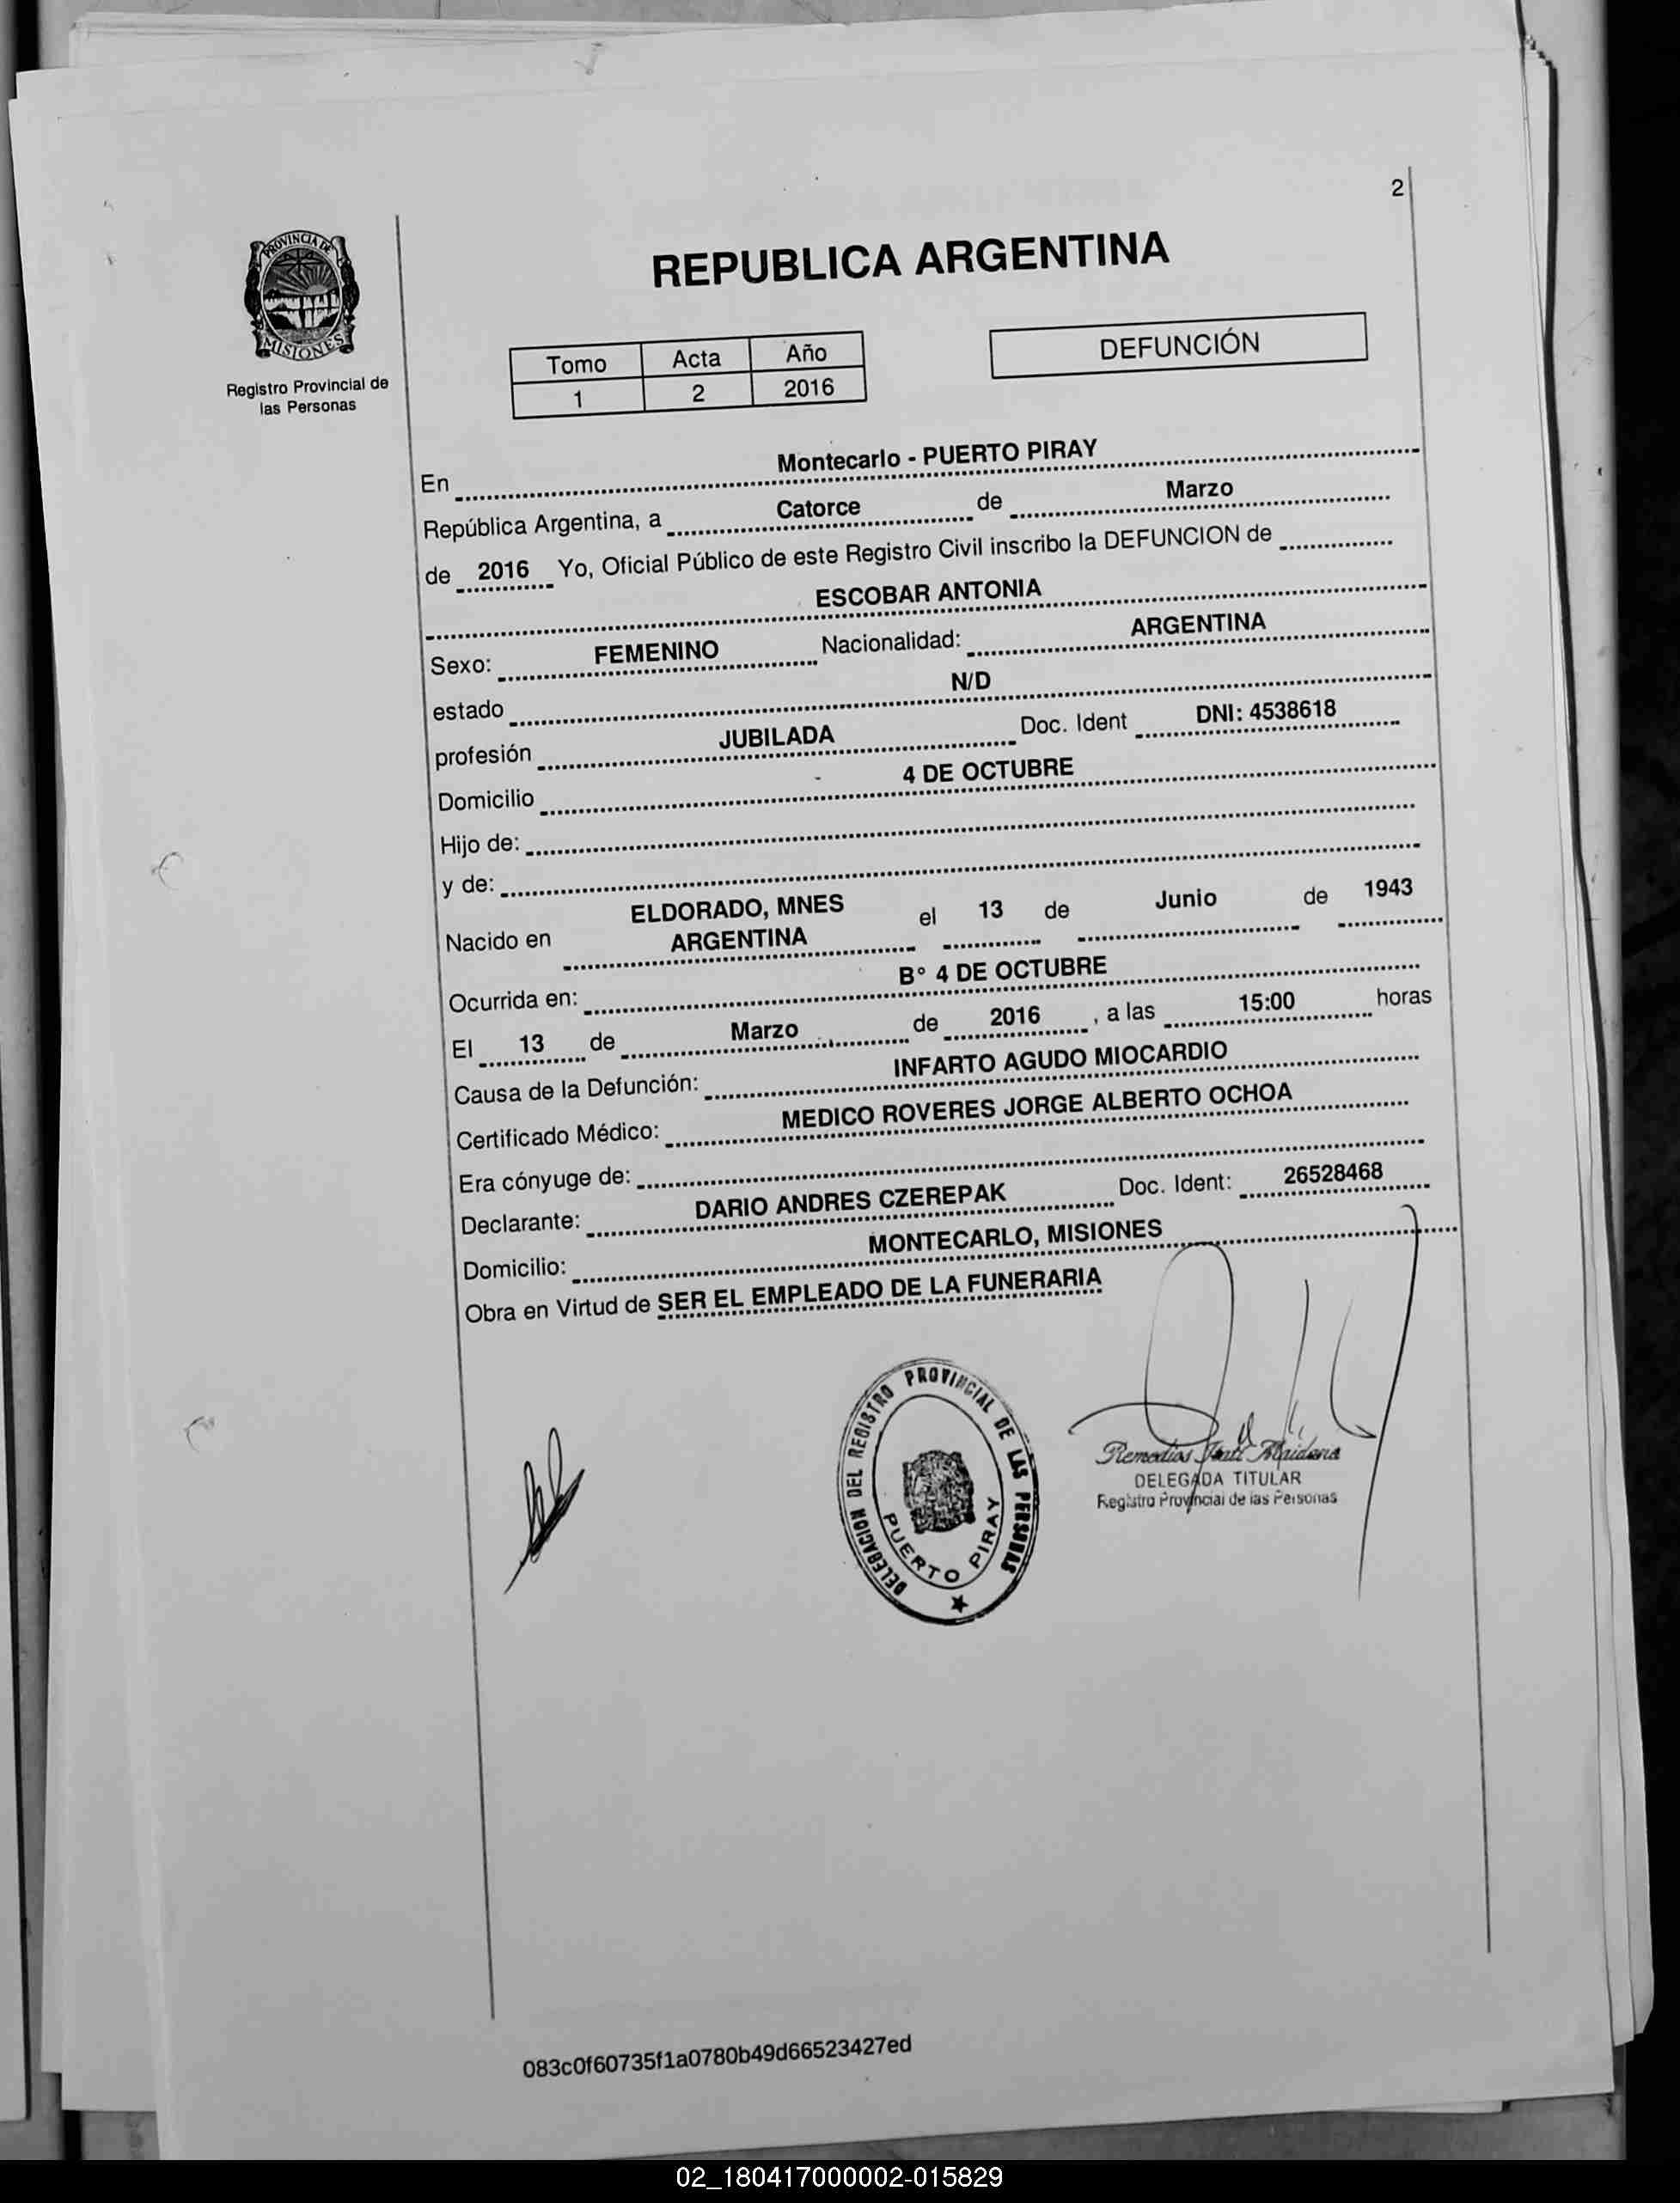 2
PROVINCIA DE
MISIONES
Registro Provincial de
las Personas
REPUBLICA ARGENTINA
Tomo Acta Año
1 2 2016
DEFUNCIÓN
En Montecarlo - PUERTO PIRAY
República Argentina, a Catorce de Marzo
de 2016 Yo, Oficial Público de este Registro Civil inscribo la DEFUNCION de
ESCOBAR ANTONIA
Sexo: FEMENINO Nacionalidad: ARGENTINA
estado N/D
profesión JUBILADA Doc. Ident DNI: 4538618
Domicilio 4 DE OCTUBRE
Hijo de:
y de:
ELDORADO, MNES
Nacido en ARGENTINA el 13 de Junio de 1943
Ocurrida en: B° 4 DE OCTUBRE
El 13 de Marzo de 2016 , a las 15:00 horas
Causa de la Defunción: INFARTO AGUDO MIOCARDIO
Certificado Médico: MEDICO ROVERES JORGE ALBERTO OCHOA
Era cónyuge de:
Declarante: DARIO ANDRES CZEREPAK Doc. Ident: 26528468
Domicilio: MONTECARLO, MISIONES
Obra en Virtud de SER EL EMPLEADO DE LA FUNERARIA
DELEGACION DEL REGISTRO PROVINCIAL DE LAS PERSONAS
PUERTO PIRAY
Remedios
DELEGADA TITULAR
Registro Provincial de las Personas
083c0f60735f1a0780b49d66523427ed
02_180417000002-015829